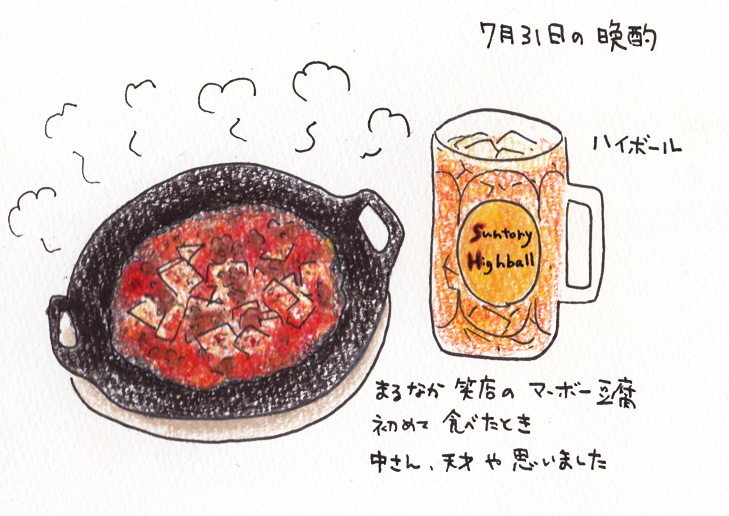 7月31日の晩酌
ハイボール
Suntory
Highball
まるなか笑店のマーボー豆腐
初めて食べたとき
中さん、天才や思いました